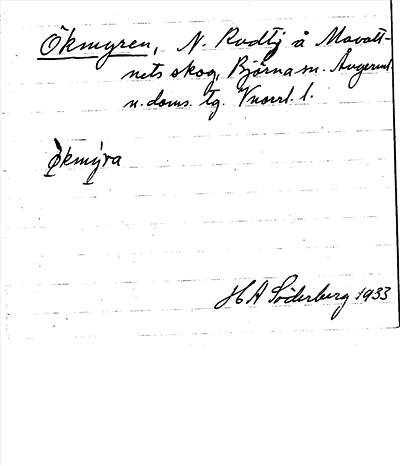 Ökmyren, N. Rödtj å Movatt-
nets skog, Björna sn. Ångerml.
n. doms. tg. Vnorrl. l.
ökmýra
H A Söderberg 1933